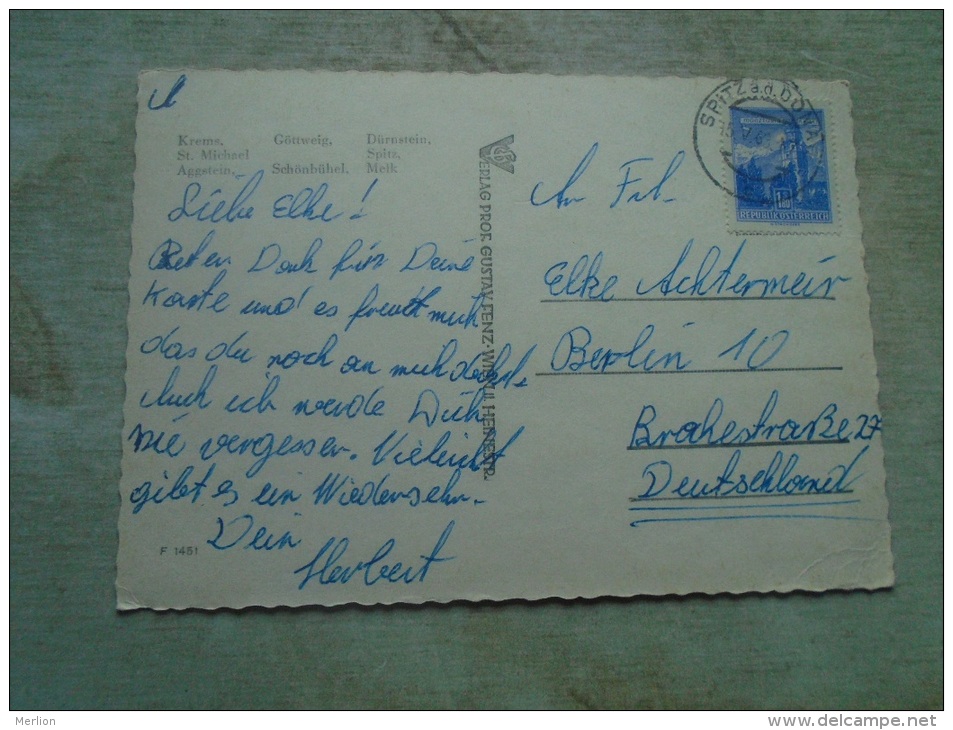 Krems, Göttweig, Dürnstein,
St. Michael Spitz,
Aggstein, Schönbühel, Melk
Liebe Elke!
Dank für Deine
Karte und es freut mich
das du noch an mich denkst.
Auch ich werde Dich
nie vergessen. Vieleicht
gibt es ein Wiedersehn.
Dein
Herbert
F 1451
VERLAG PROF. GUSTAV FENZ · WIEN II, HEINESTR.
SPITZ a.d. DONAU
1.80
REPUBLIK ÖSTERREICH
An Frl.
Elke Achtermeir
Berlin 10
Brahestraße 27
Deutschland
Merlion
delcampe.net